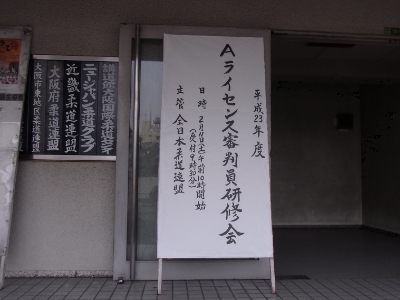 平成23年度
Aライセンス審判員研修会
日時 2月11日(土)午前10時開始
(受付9時30分)
主管 全日本柔道連盟
講道館大阪国際柔道センター
ニュージャパン柔道クラブ
近畿柔道連盟
大阪府柔道連盟
大阪市東地区柔道連盟